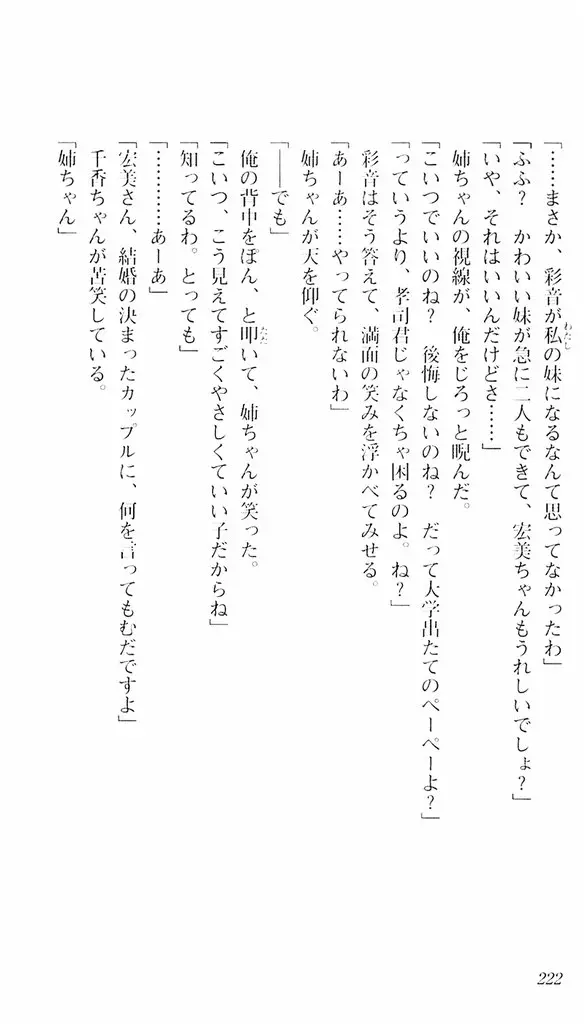 「……まさか、彩音が私の妹になるなんて思ってなかったわ」
わたし
「ふふ？　かわいい妹が急に二人もできて、宏美ちゃんもうれしいでしょ？」
「いや、それはいいんだけどさ……」
姉ちゃんの視線が、俺をじろっと睨んだ。
「こいつでいいのね？　後悔しないのね？　だって大学出たてのぺーぺーよ？」
「っていうより、孝司君じゃなくちゃ困るのよ。ね？」
彩音はそう答えて、満面の笑みを浮かべてみせる。
「あーあ……やってられないわ」
姉ちゃんが天を仰ぐ。
「――でも」
俺の背中をぽん、と叩いて、姉ちゃんが笑った。
たた
「こいつ、こう見えてすごくやさしくていい子だからね」
「知ってるわ。とっても」
「…………あーあ」
「宏美さん、結婚の決まったカップルに、何を言ってもむだですよ」
千香ちゃんが苦笑している。
「姉ちゃん」
222